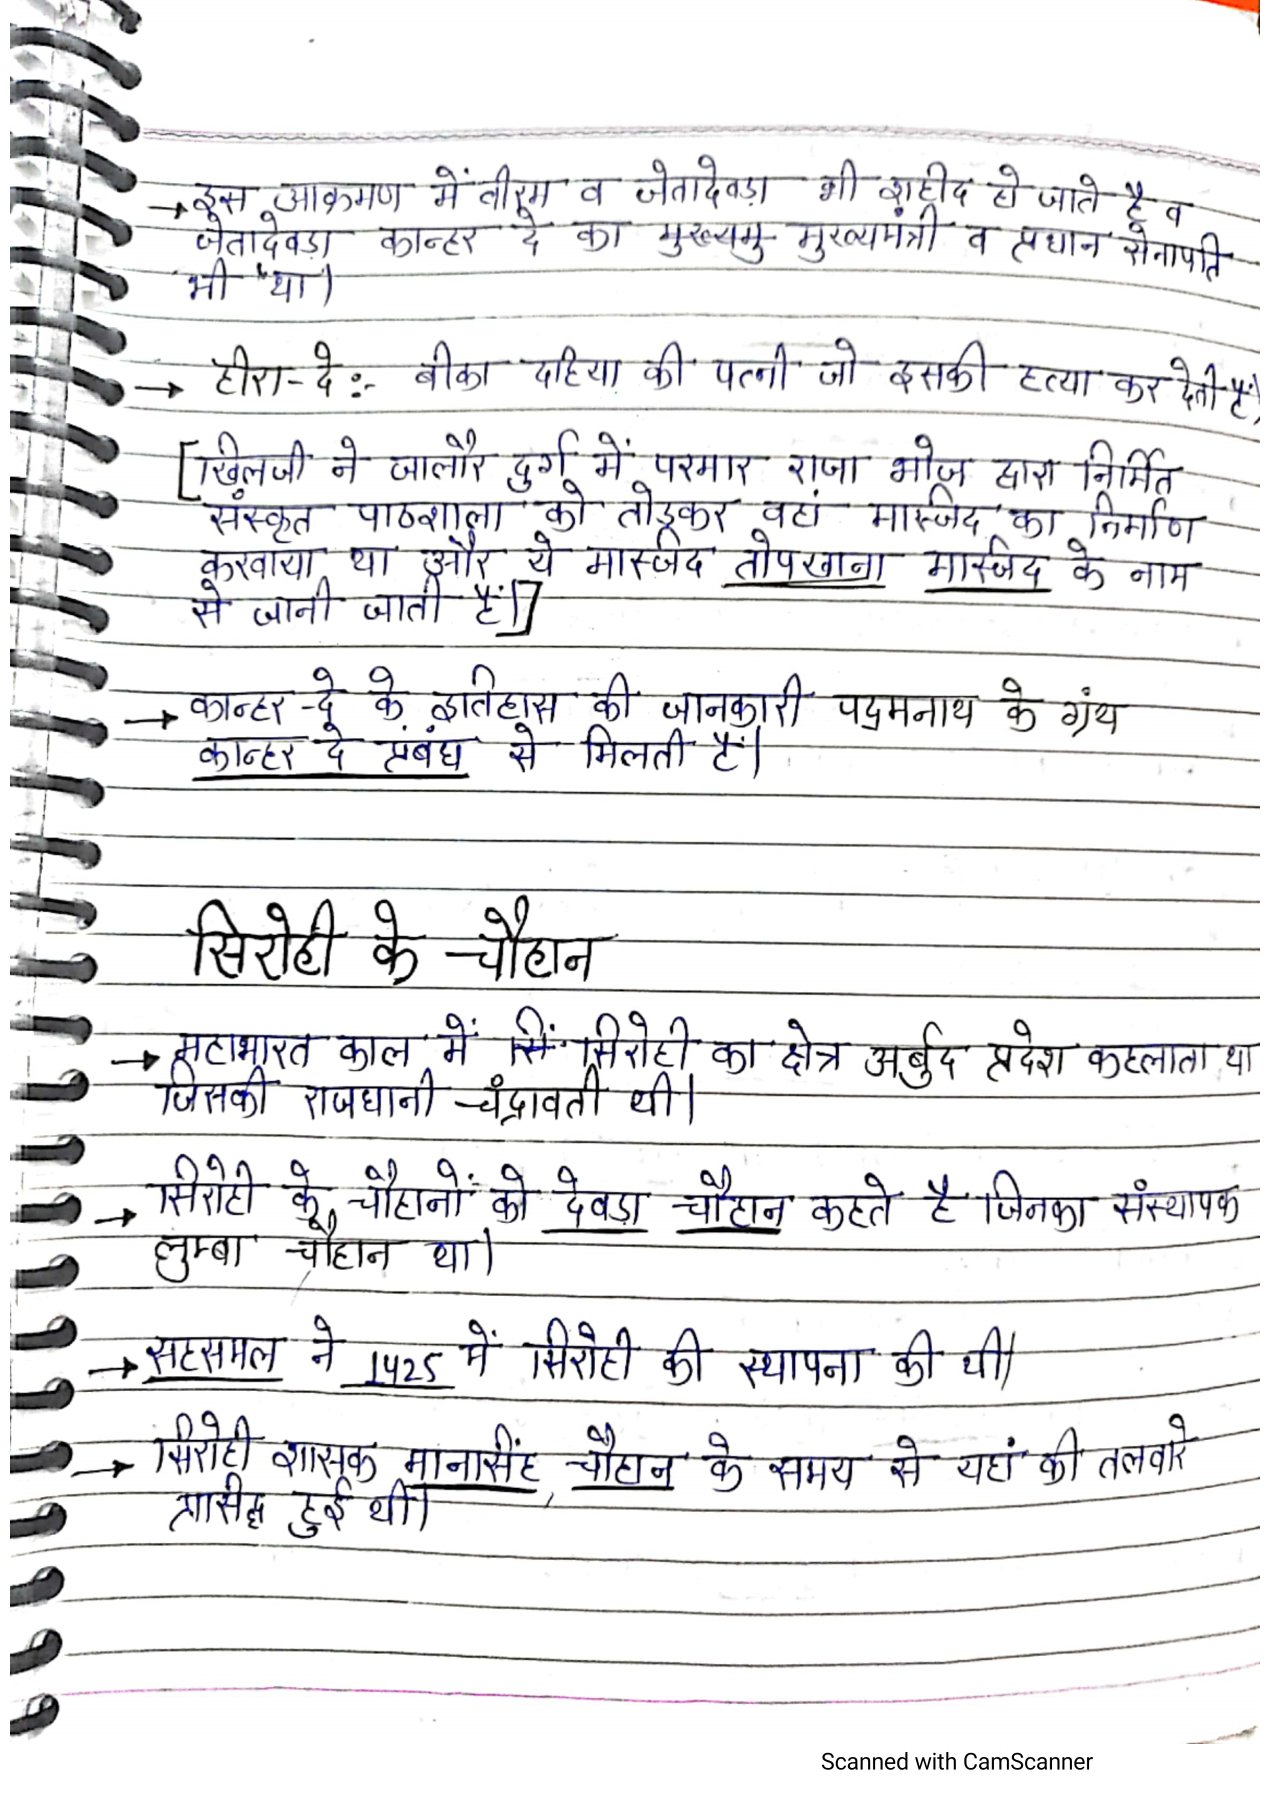 → इस आक्रमण में वीरम व जेतादेवड़ा भी शहीद हो जाते है व
जेतादेवड़ा कान्हर दे का मुख्यमु मुख्यमंत्री व प्रधान सेनापति
भी था।
→ हीरा-दे :- बीका दहिया की पत्नी जो इसकी हत्या कर देती हैं।
[खिलजी ने जालौर दुर्ग में परमार राजा भोज द्वारा निर्मित
संस्कृत पाठशाला को तोड़कर वहां मस्जिद का निर्माण
करवाया था और ये मस्जिद तोपखाना मस्जिद के नाम
से जानी जाती हैं।]
→ कान्हर-दे के इतिहास की जानकारी पद्मनाथ के ग्रंथ
कान्हर दे प्रंबंध से मिलती हैं।
सिरोही के चौहान
→ महाभारत काल में सिं सिरोही का क्षेत्र अर्बुद प्रदेश कहलाता था
जिसकी राजधानी चंद्रावती थी।
→ सिरोही के चौहानों को देवड़ा चौहान कहते है जिनका संस्थापक
लुम्बा चौहान था।
→ सहसमल ने 1425 में सिरोही की स्थापना की थी।
→ सिरोही शासक मानसिंह चौहान के समय से यहां की तलवारे
प्रसिद्ध हुई थी।
Scanned with CamScanner